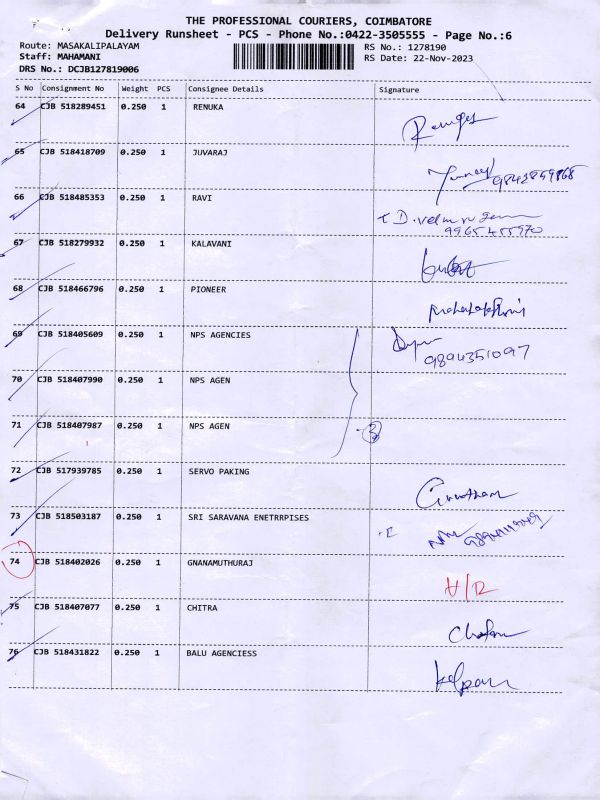 THE PROFESSIONAL COURIERS, COIMBATORE
Delivery Runsheet - PCS - Phone No.:0422-3505555 - Page No.:6
Route: MASAKALIPALAYAM
RS No.: 1278190
Staff: MAHAMANI
RS Date: 22-Nov-2023
DRS No.: DCJB127819006
S No Consignment No Weight PCS Consignee Details Signature
64 CJB 518289451 0.250 1 RENUKA
65 CJB 518418709 0.250 1 JUVARAJ
9842859868
66 CJB 518485353 0.250 1 RAVI
9965455970
67 CJB 518279932 0.250 1 KALAVANI
68 CJB 518466796 0.250 1 PIONEER
69 CJB 518405609 0.250 1 NPS AGENCIES
9894351097
70 CJB 518407990 0.250 1 NPS AGEN
71 CJB 518407987 0.250 1 NPS AGEN
3
72 CJB 517939785 0.250 1 SERVO PAKING
73 CJB 518503187 0.250 1 SRI SARAVANA ENETRRPISES
74 CJB 518402026 0.250 1 GNANAMUTHURAJ
75 CJB 518407077 0.250 1 CHITRA
76 CJB 518431822 0.250 1 BALU AGENCIESS